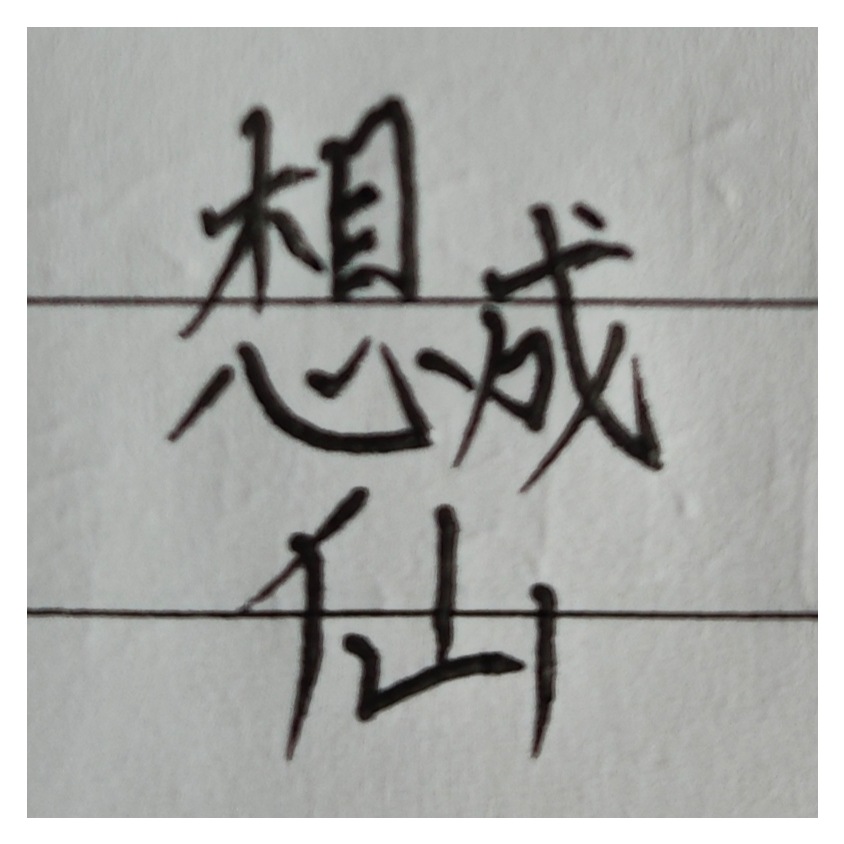 想成
仙